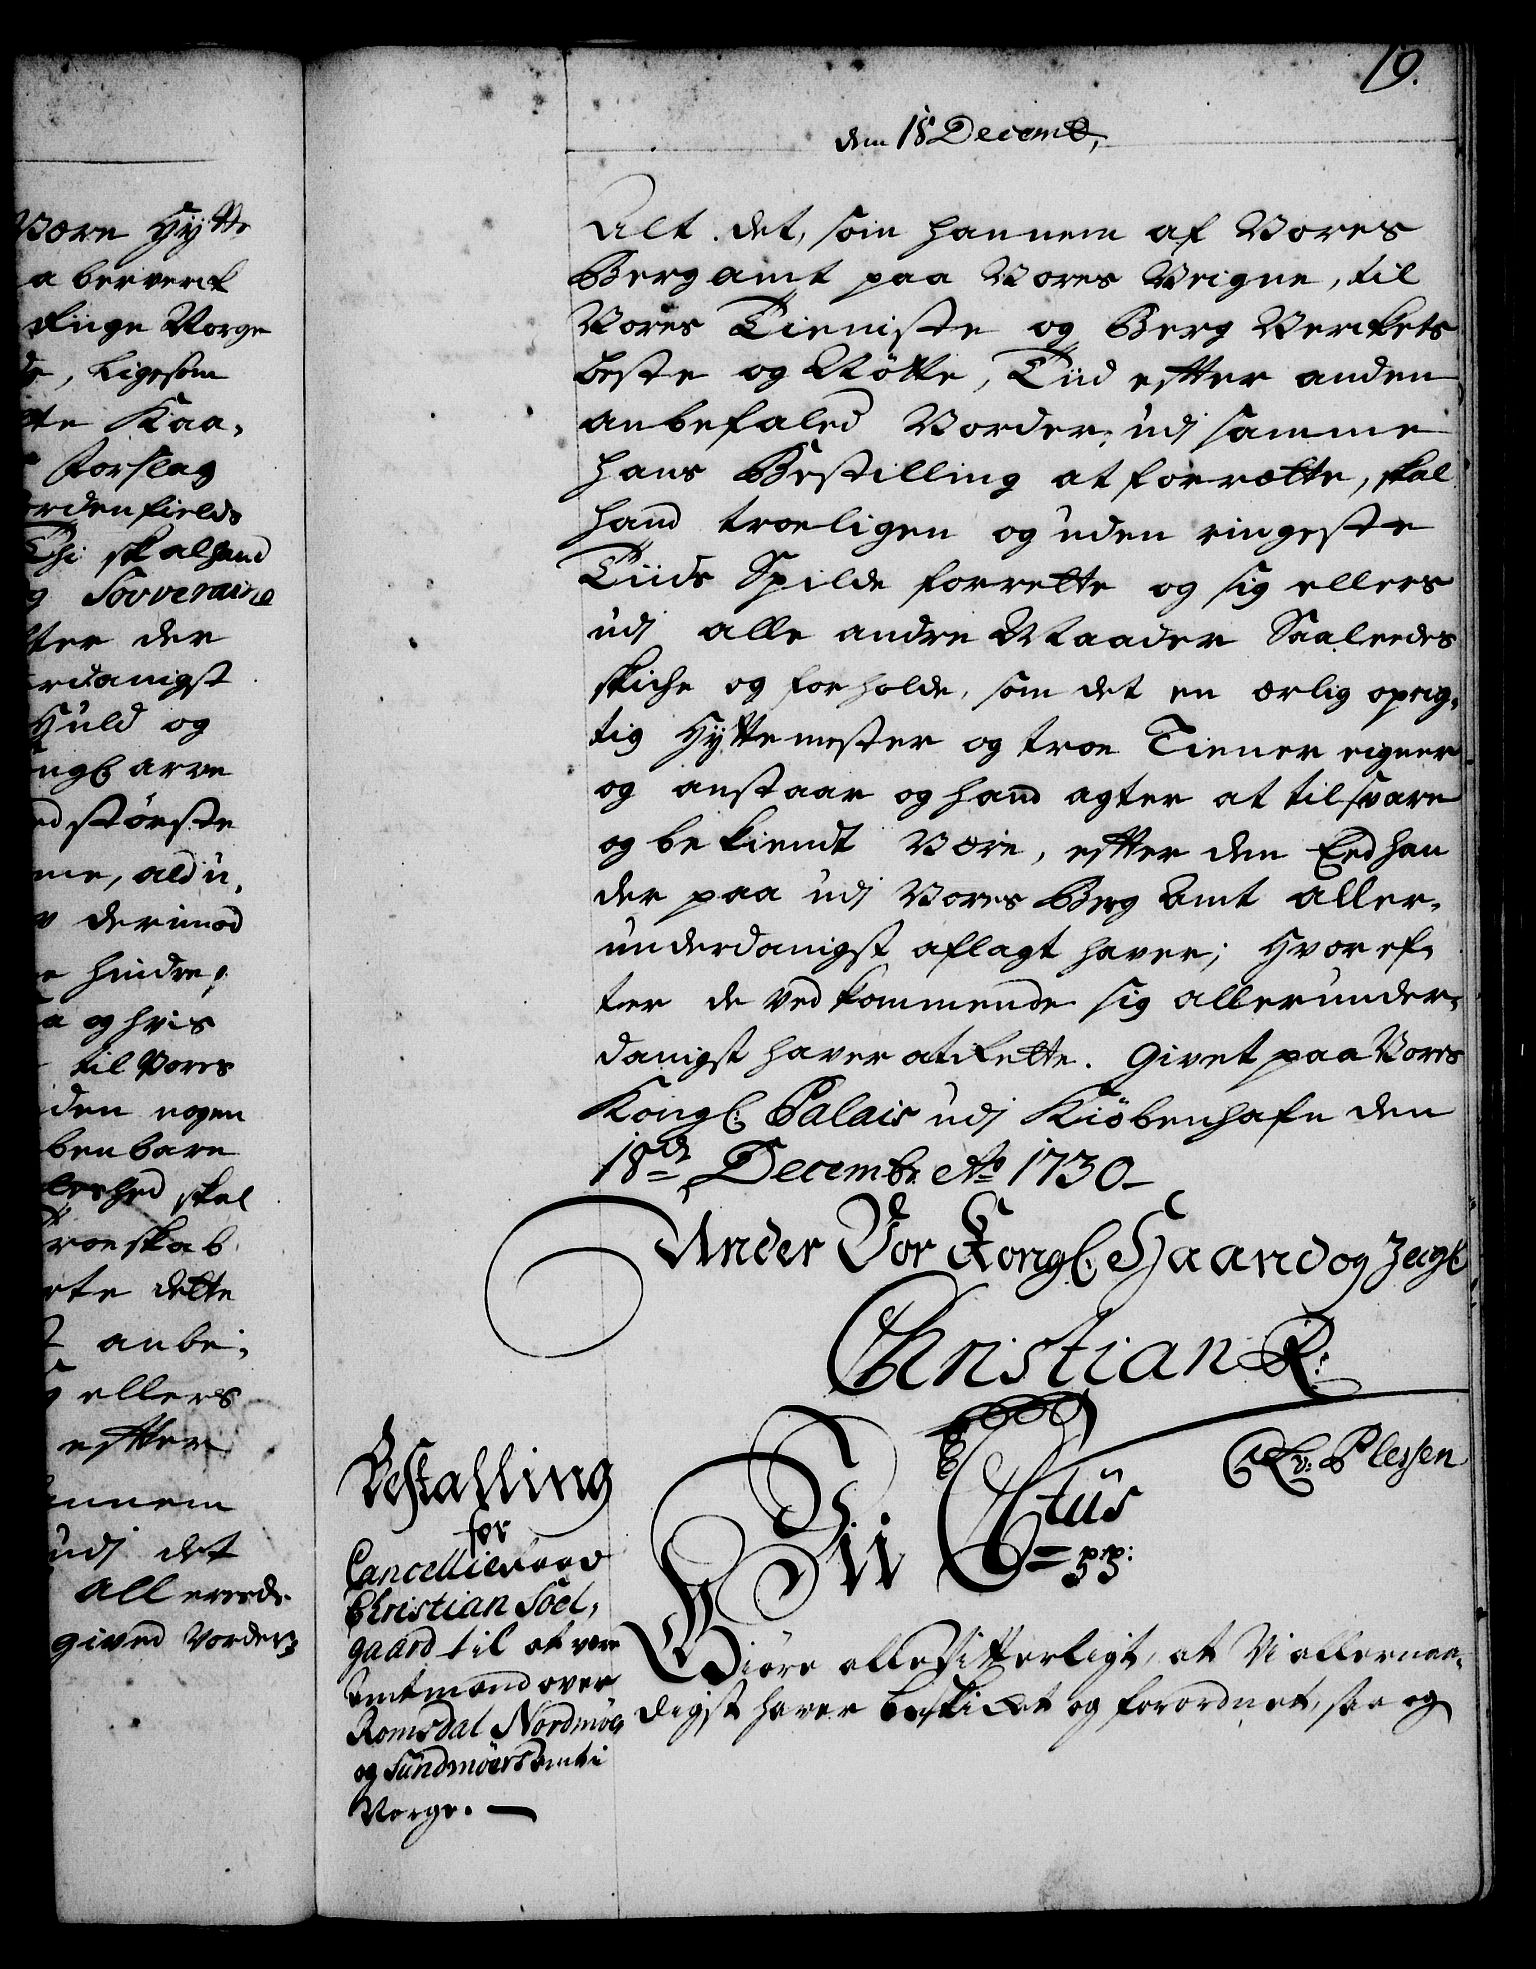 19.
den 18 Decemb,
Alt det, som hannem af Vores
Berg amt paa Vores Veigne, til
Vores Tieniste og Berg Verckets
beste og Nøtte, Tiid efter anden
anbefaled Vorder, udj samme
hans Bestilling at forrætte, skal
hand troeligen og uden ringeste
Tiids Spilde forrette og sig ellers
udj alle andre Maader Saaleedes
skiche og forholde, som det en ærlig oprig,
tig Hyttemester og troe Tiener eigner
og anstaar og hand agter at tilsvare
og bekiendt Være, efter den Eed han
der paa udj Vores Berg Amt aller,
underdanigst aflagt haver; Hvoref,
ter de vedkommende sig allerunder,
danigst haver at rette. Givet paa Vores
Kongl: Palais udj Kiöbenhafn den
18de Decembr Ao 1730
Under Vor Kongl. Haand og Zeigl
Christian R:
C A v: Plessen
Bestalling
for
Cancellieraad
Christian Söel,
gaard til at være
Amtmand over
Romsdal Nordmöer
og Sundmöers Amt i
Norge.
Vii Ctus
pp:
Giöre alle Vitterligt, at Vi allernaa,
digst haver beskicket og forordnet, saa og
Være Hytte
a berverck
dluge Norge
de, Ligesom
Kaa,
Forslag
ordenfields
Thi skal hand
og Souveraine
efter der
erdanigst
Huld og
ongl arve
ed största
derimod
hindre,
a og hvis
til Vores
den nogen
benbare
skal
roeskab
dette
anbe,
ellers
efter
annem
udj det
Allereede
gived Vorder,